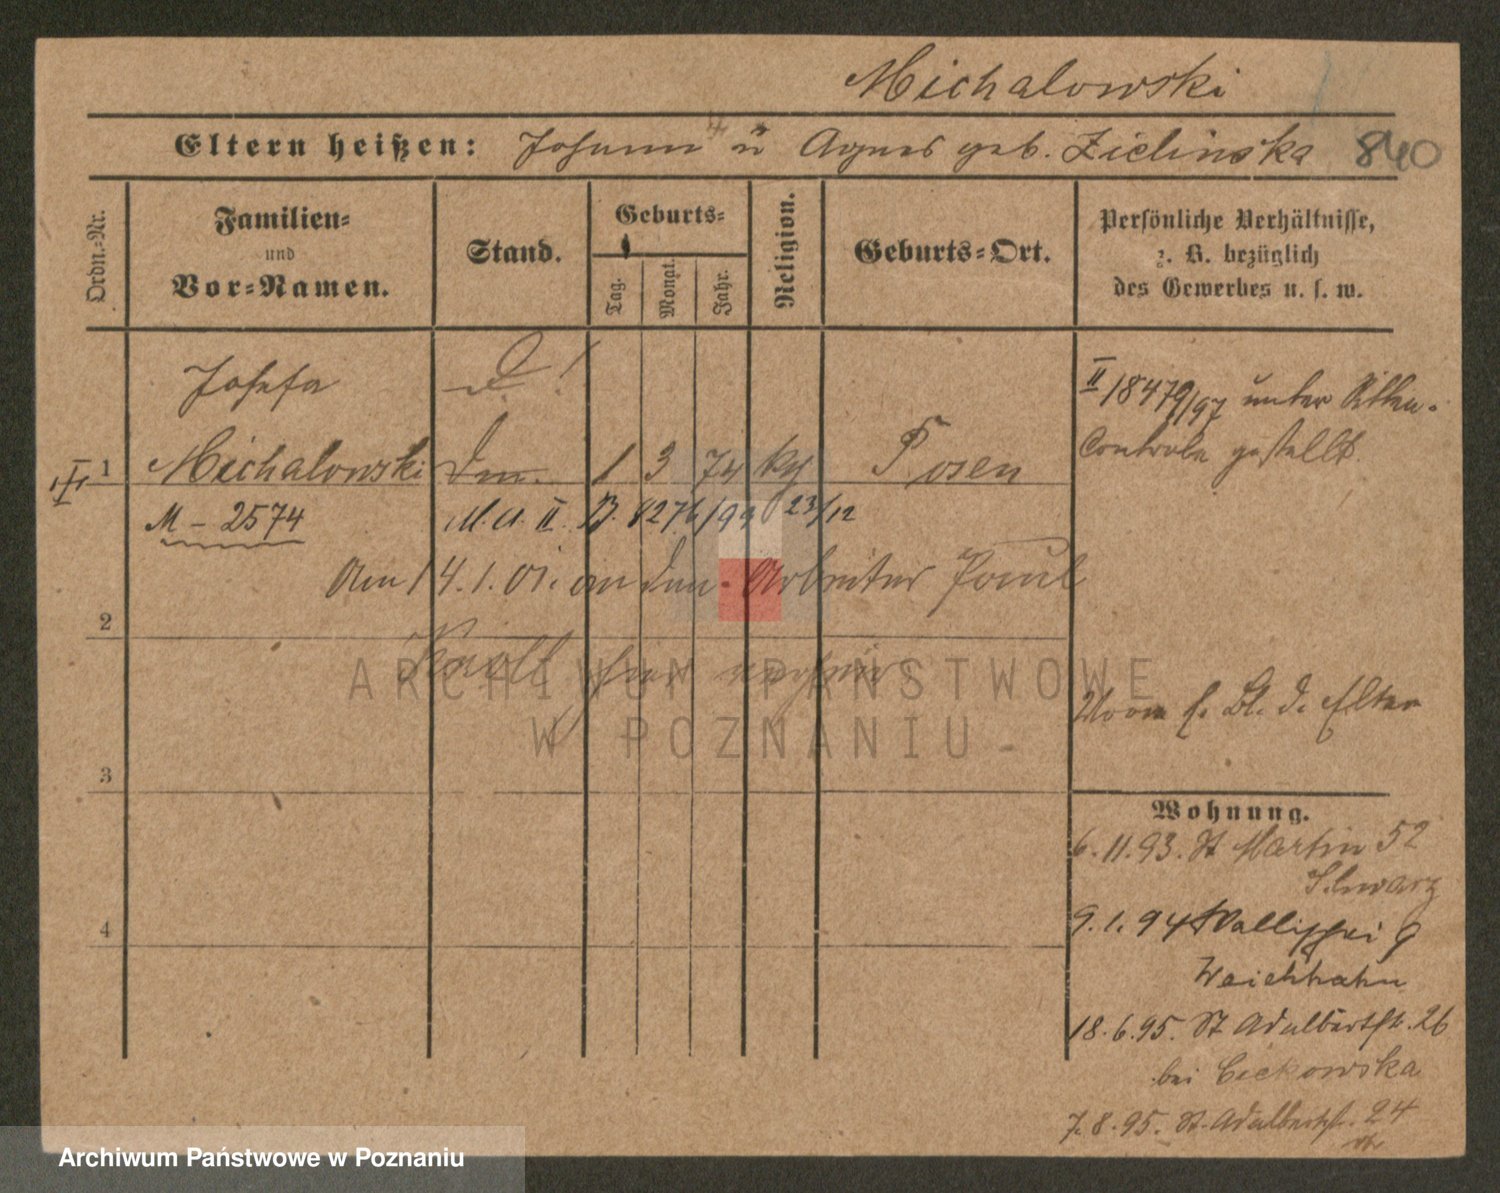 Michalowski
Eltern heißen: Johann u Agnes geb. Zielinska 840
Ordn.-Nr.
Familien-
und
Vor-Namen.
Stand.
Geburts-
Tag.
Monat.
Jahr.
Religion.
Geburts-Ort.
Persönliche Verhältnisse,
z. B. bezüglich
des Gewerbes u. s. w.
Josefa
II 18479/97 unter Sitten-
Controle gestellt.
1 Michalowski 1 3 74 Posen
M - 2574
M. A. II. B. 8276/99 23/12
Am 14.1.01. an den Arbeiter Paul
2
verh.
d. Elter
3
Wohnung.
6.11.93. St Martin 52
Schwarz
9.1.94 Wallischei 9
4
Weichhahn
18.6.95. St Adalbertstr. 26
bei Cickowska
7.8.95. St. Adalbertst. 24
ARCHIWUM PAŃSTWOWE
W POZNANIU
Archiwum Państwowe w Poznaniu